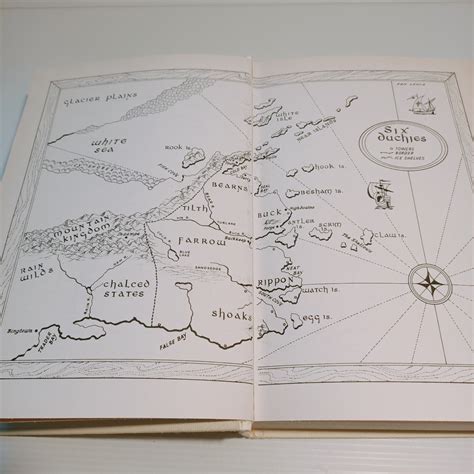 GLACIER PLAINS
WHITE
SEA
WHITE
ISLE
NEAR ISLANDS
SIX
DUCHIES
TOWERS
BORDER
ICE SHELVES
HOOK IS.
BEARNS
BESHAM IS.
TILTH
BUCK
ANTLER
IS.
SCRIM
IS.
CLAW IS.
MOUNTAIN
KINGDOM
FARROW
BLUE
LAKE
SANDSEDGE
RAIN
WILDS
CHALCED
STATES
RIPPON
NEAT
BAY
WATCH IS.
SOUTH COVE
SHOAKS
EGG IS.
Bingtown
TRADER
BAY
FALSE BAY